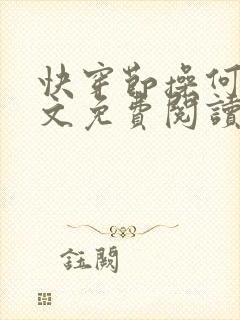 快穿節操何
文免費閱讀
註闕